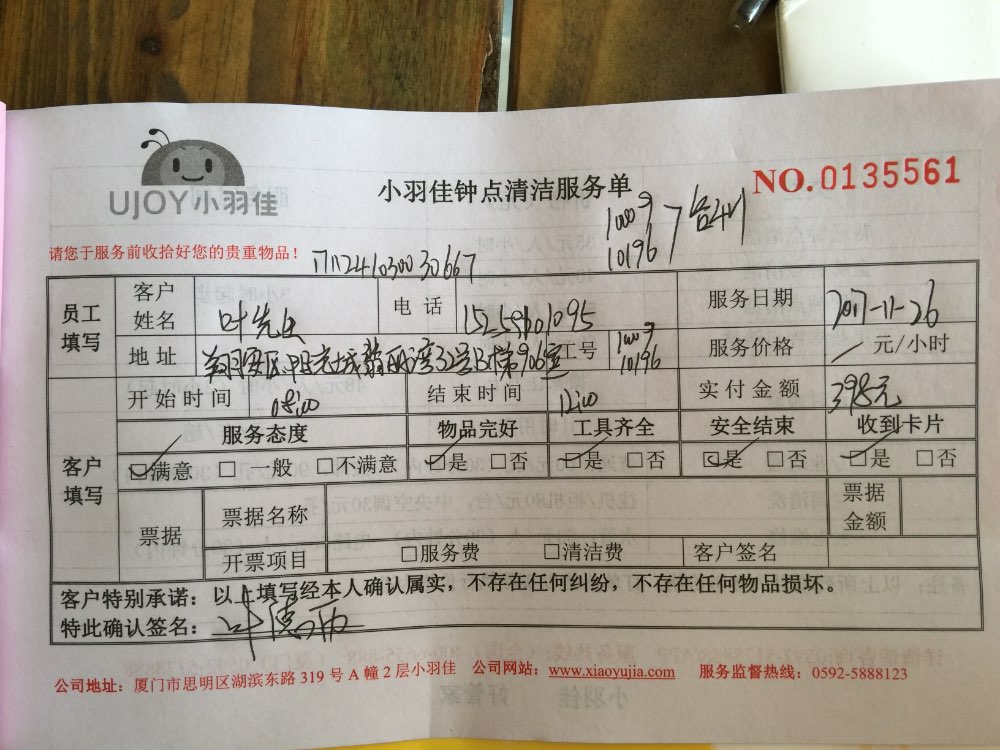 UJOY小羽佳
小羽佳钟点清洁服务单
NO.0135561
10009
10196
请您于服务前收拾好您的贵重物品！
员工填写
客户姓名 叶先生 电话 服务日期 2017-11-26
地址 工号 10009 10196 服务价格 元/小时
开始时间 08:00 结束时间 12:00 实付金额 398元
客户填写
服务态度 物品完好 工具齐全 安全结束 收到卡片
☑满意 □一般 □不满意 ☑是 □否 ☑是 □否 ☑是 □否 ☑是 □否
票据 票据名称 票据金额
开票项目 □服务费 □清洁费 客户签名
客户特别承诺：以上填写经本人确认属实，不存在任何纠纷，不存在任何物品损坏。
特此确认签名：
公司地址：厦门市思明区湖滨东路 319 号 A 幢 2 层小羽佳 公司网站：www.xiaoyujia.com 服务监督热线：0592-5888123